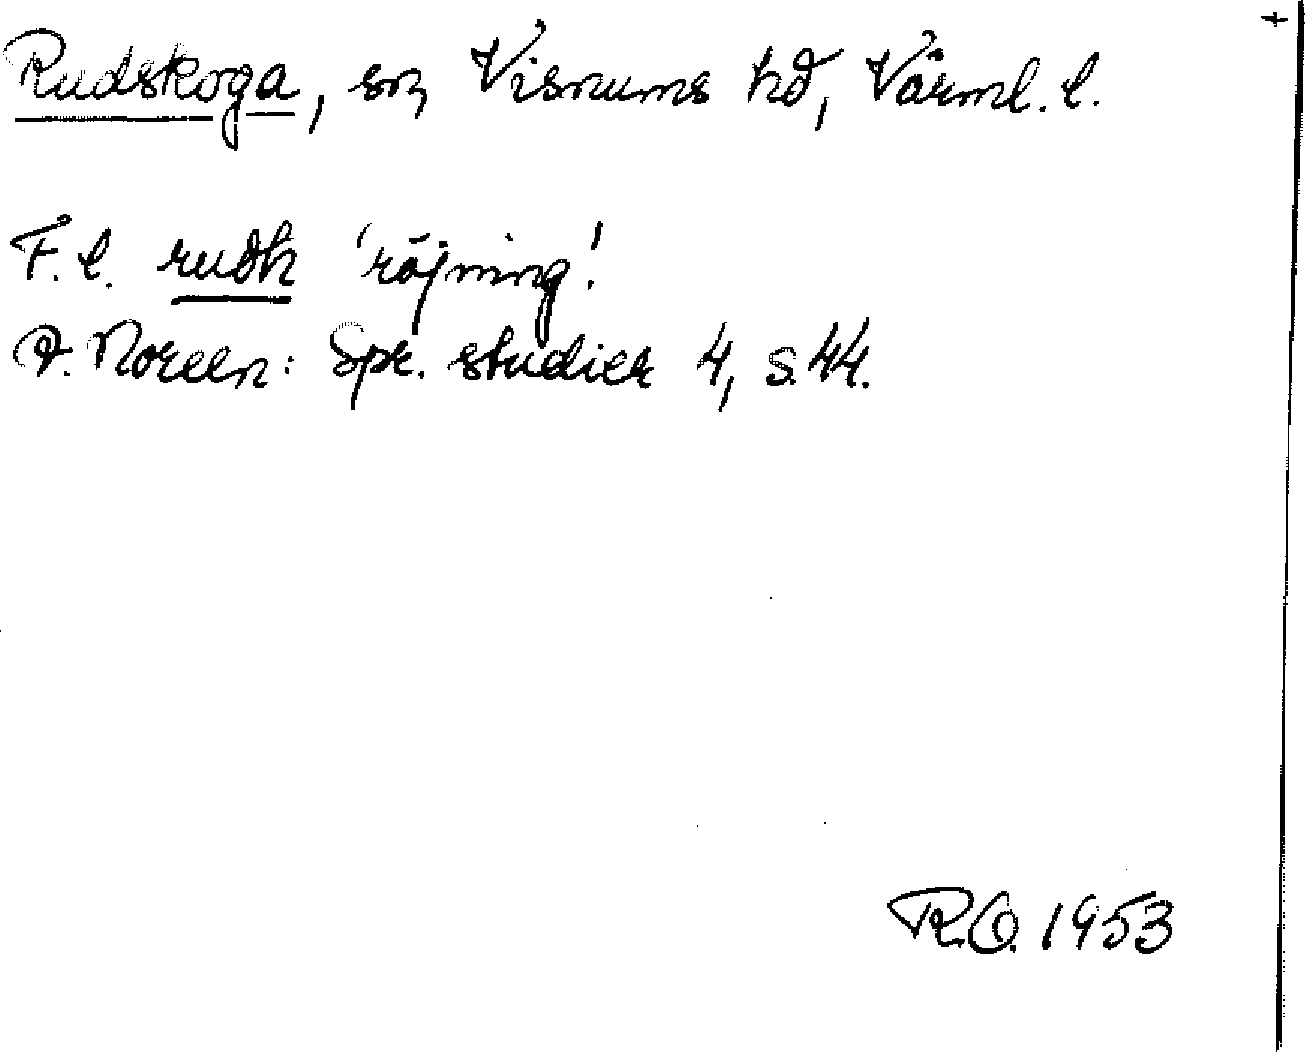 Rudskoga, sn, Visnums hd, Värml. l.
F. l. rudh 'röjning'.
A. Noreen: Spr. studier 4, s. 44.
R.O. 1953